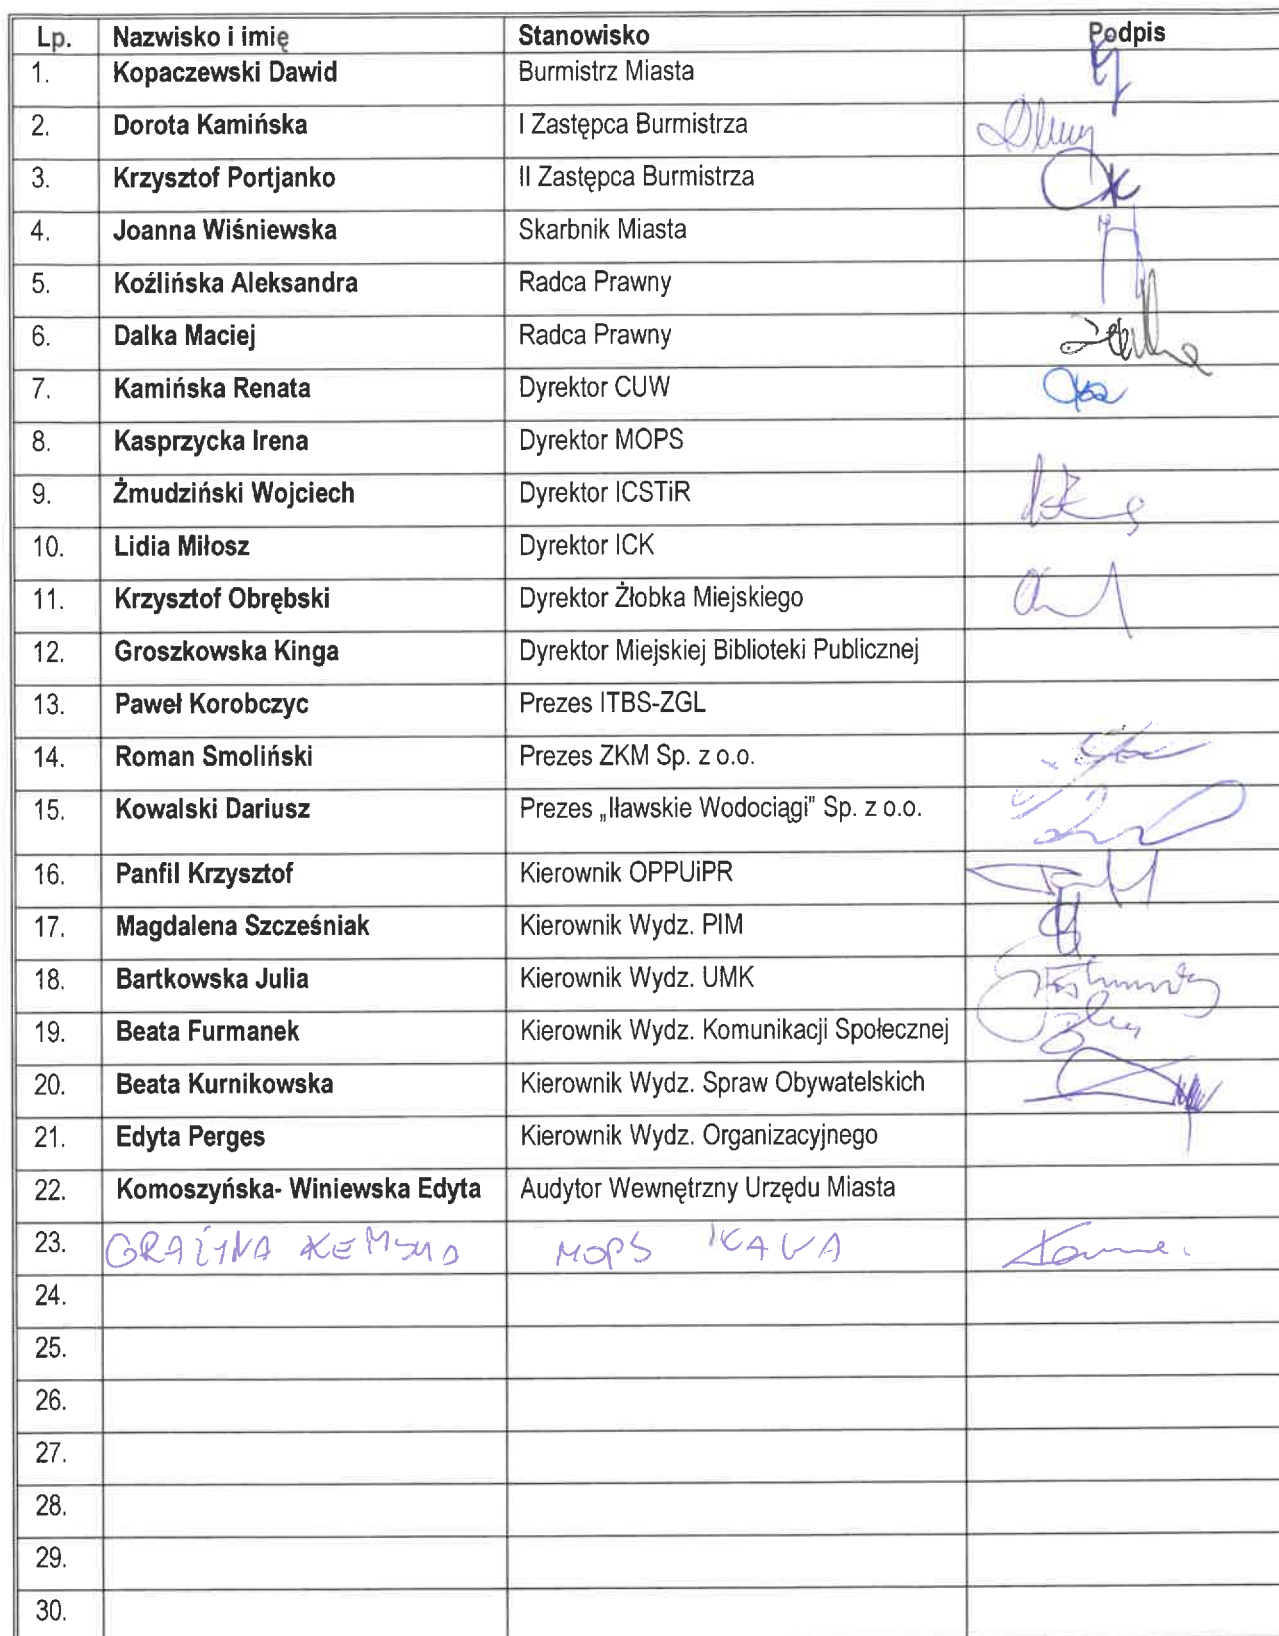 Lp. Nazwisko i imię Stanowisko Podpis
1. Kopaczewski Dawid Burmistrz Miasta
2. Dorota Kamińska I Zastępca Burmistrza
3. Krzysztof Portjanko II Zastępca Burmistrza
4. Joanna Wiśniewska Skarbnik Miasta
5. Koźlińska Aleksandra Radca Prawny
6. Dalka Maciej Radca Prawny
7. Kamińska Renata Dyrektor CUW
8. Kasprzycka Irena Dyrektor MOPS
9. Żmudziński Wojciech Dyrektor ICSTiR
10. Lidia Miłosz Dyrektor ICK
11. Krzysztof Obrębski Dyrektor Żłobka Miejskiego
12. Groszkowska Kinga Dyrektor Miejskiej Biblioteki Publicznej
13. Paweł Korobczyc Prezes ITBS-ZGL
14. Roman Smoliński Prezes ZKM Sp. z o.o.
15. Kowalski Dariusz Prezes „Iławskie Wodociągi" Sp. z o.o.
16. Panfil Krzysztof Kierownik OPPUiPR
17. Magdalena Szcześniak Kierownik Wydz. PIM
18. Bartkowska Julia Kierownik Wydz. UMK
19. Beata Furmanek Kierownik Wydz. Komunikacji Społecznej
20. Beata Kurnikowska Kierownik Wydz. Spraw Obywatelskich
21. Edyta Perges Kierownik Wydz. Organizacyjnego
22. Komoszyńska- Winiewska Edyta Audytor Wewnętrzny Urzędu Miasta
23. GRAŻYNA MOPS
24.
25.
26.
27.
28.
29.
30.